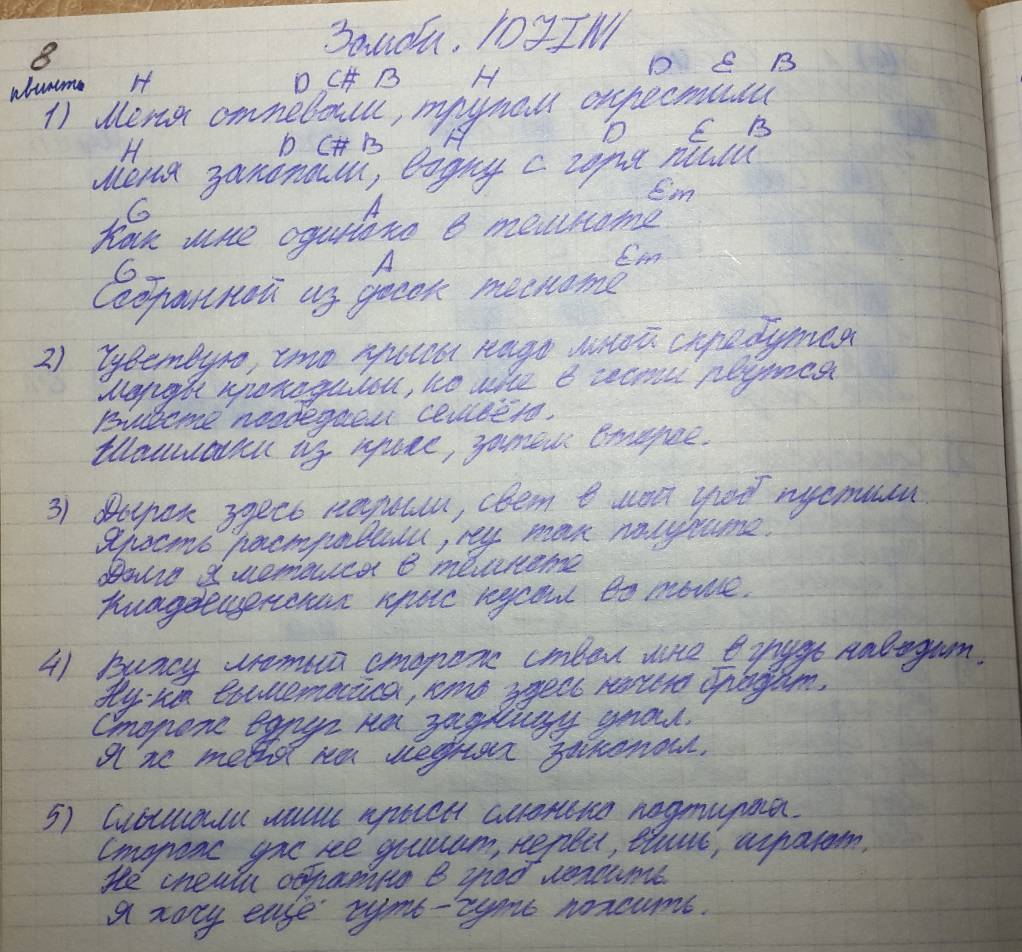 8
Зомби. /DJIN/
квинты
H D C# B H D E B
1) Меня отпевали, трупом окрестили
H D C# B H D E B
Меня закопали, водку с горя пили
G A Em
Как мне одиноко в темноте
G A Em
Собранной из досок тесноте
2) Чувствую, что крысы надо мной скребутся
Морды крокодильи, ко мне в гости рвутся
Вместе пообедаем семьёю.
Шашлыки из крыс, затем второе.
3) Дырок здесь нарыли, свет в мой гроб пустили.
Ярость растравили, ну так получите.
Долго я метался в темноте
Кладбещенских крыс кусал во тьме.
4) Вижу лютый сторож ствол мне в грудь наводит.
Ну-ка выметайся, кто здесь ночью бродит.
Сторож вдруг на задницу упал.
Я ж тебя на меднях закопал.
5) Слышали лишь крысы слюнько подтирая.
Сторож уж не дышит, нервы, вишь, играют.
Не спеши обратно в гроб ложить
Я хочу ещё чуть-чуть пожить.